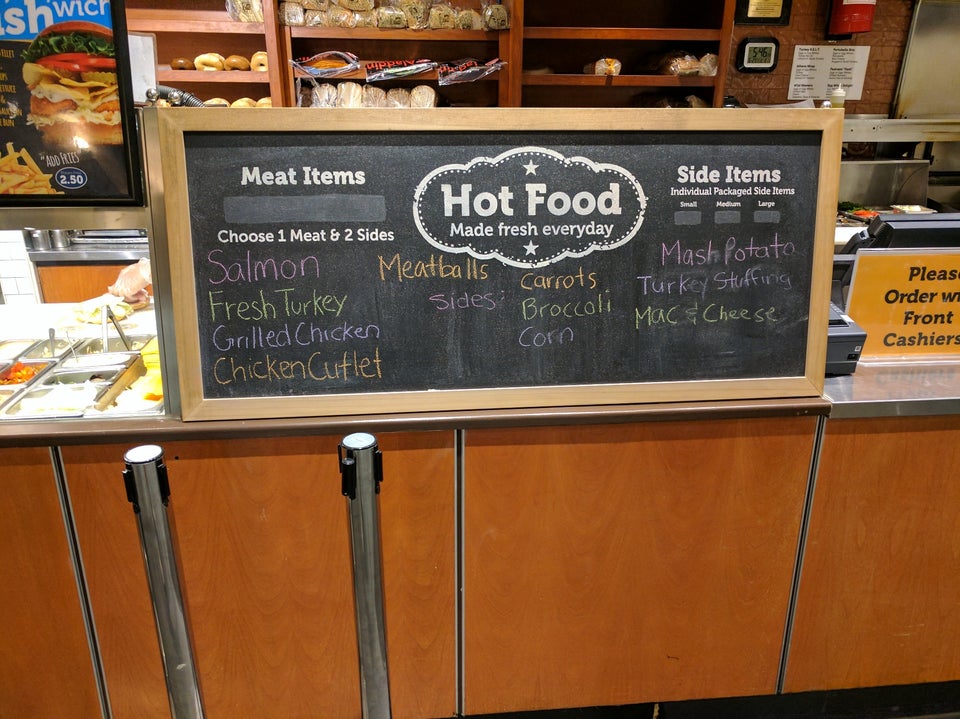 shwich
"ADD FRIES"
2.50
5:46
Meat Items
Choose 1 Meat & 2 Sides
Salmon
Fresh Turkey
Grilled Chicken
Chicken Cutlet
Meatballs
Sides:
Hot Food
Made fresh everyday
Carrots
Broccoli
Corn
Side Items
Individual Packaged Side Items
Small Medium Large
Mash Potato
Turkey Stuffing
Mac & Cheese
Please
Order w
Front
Cashiers